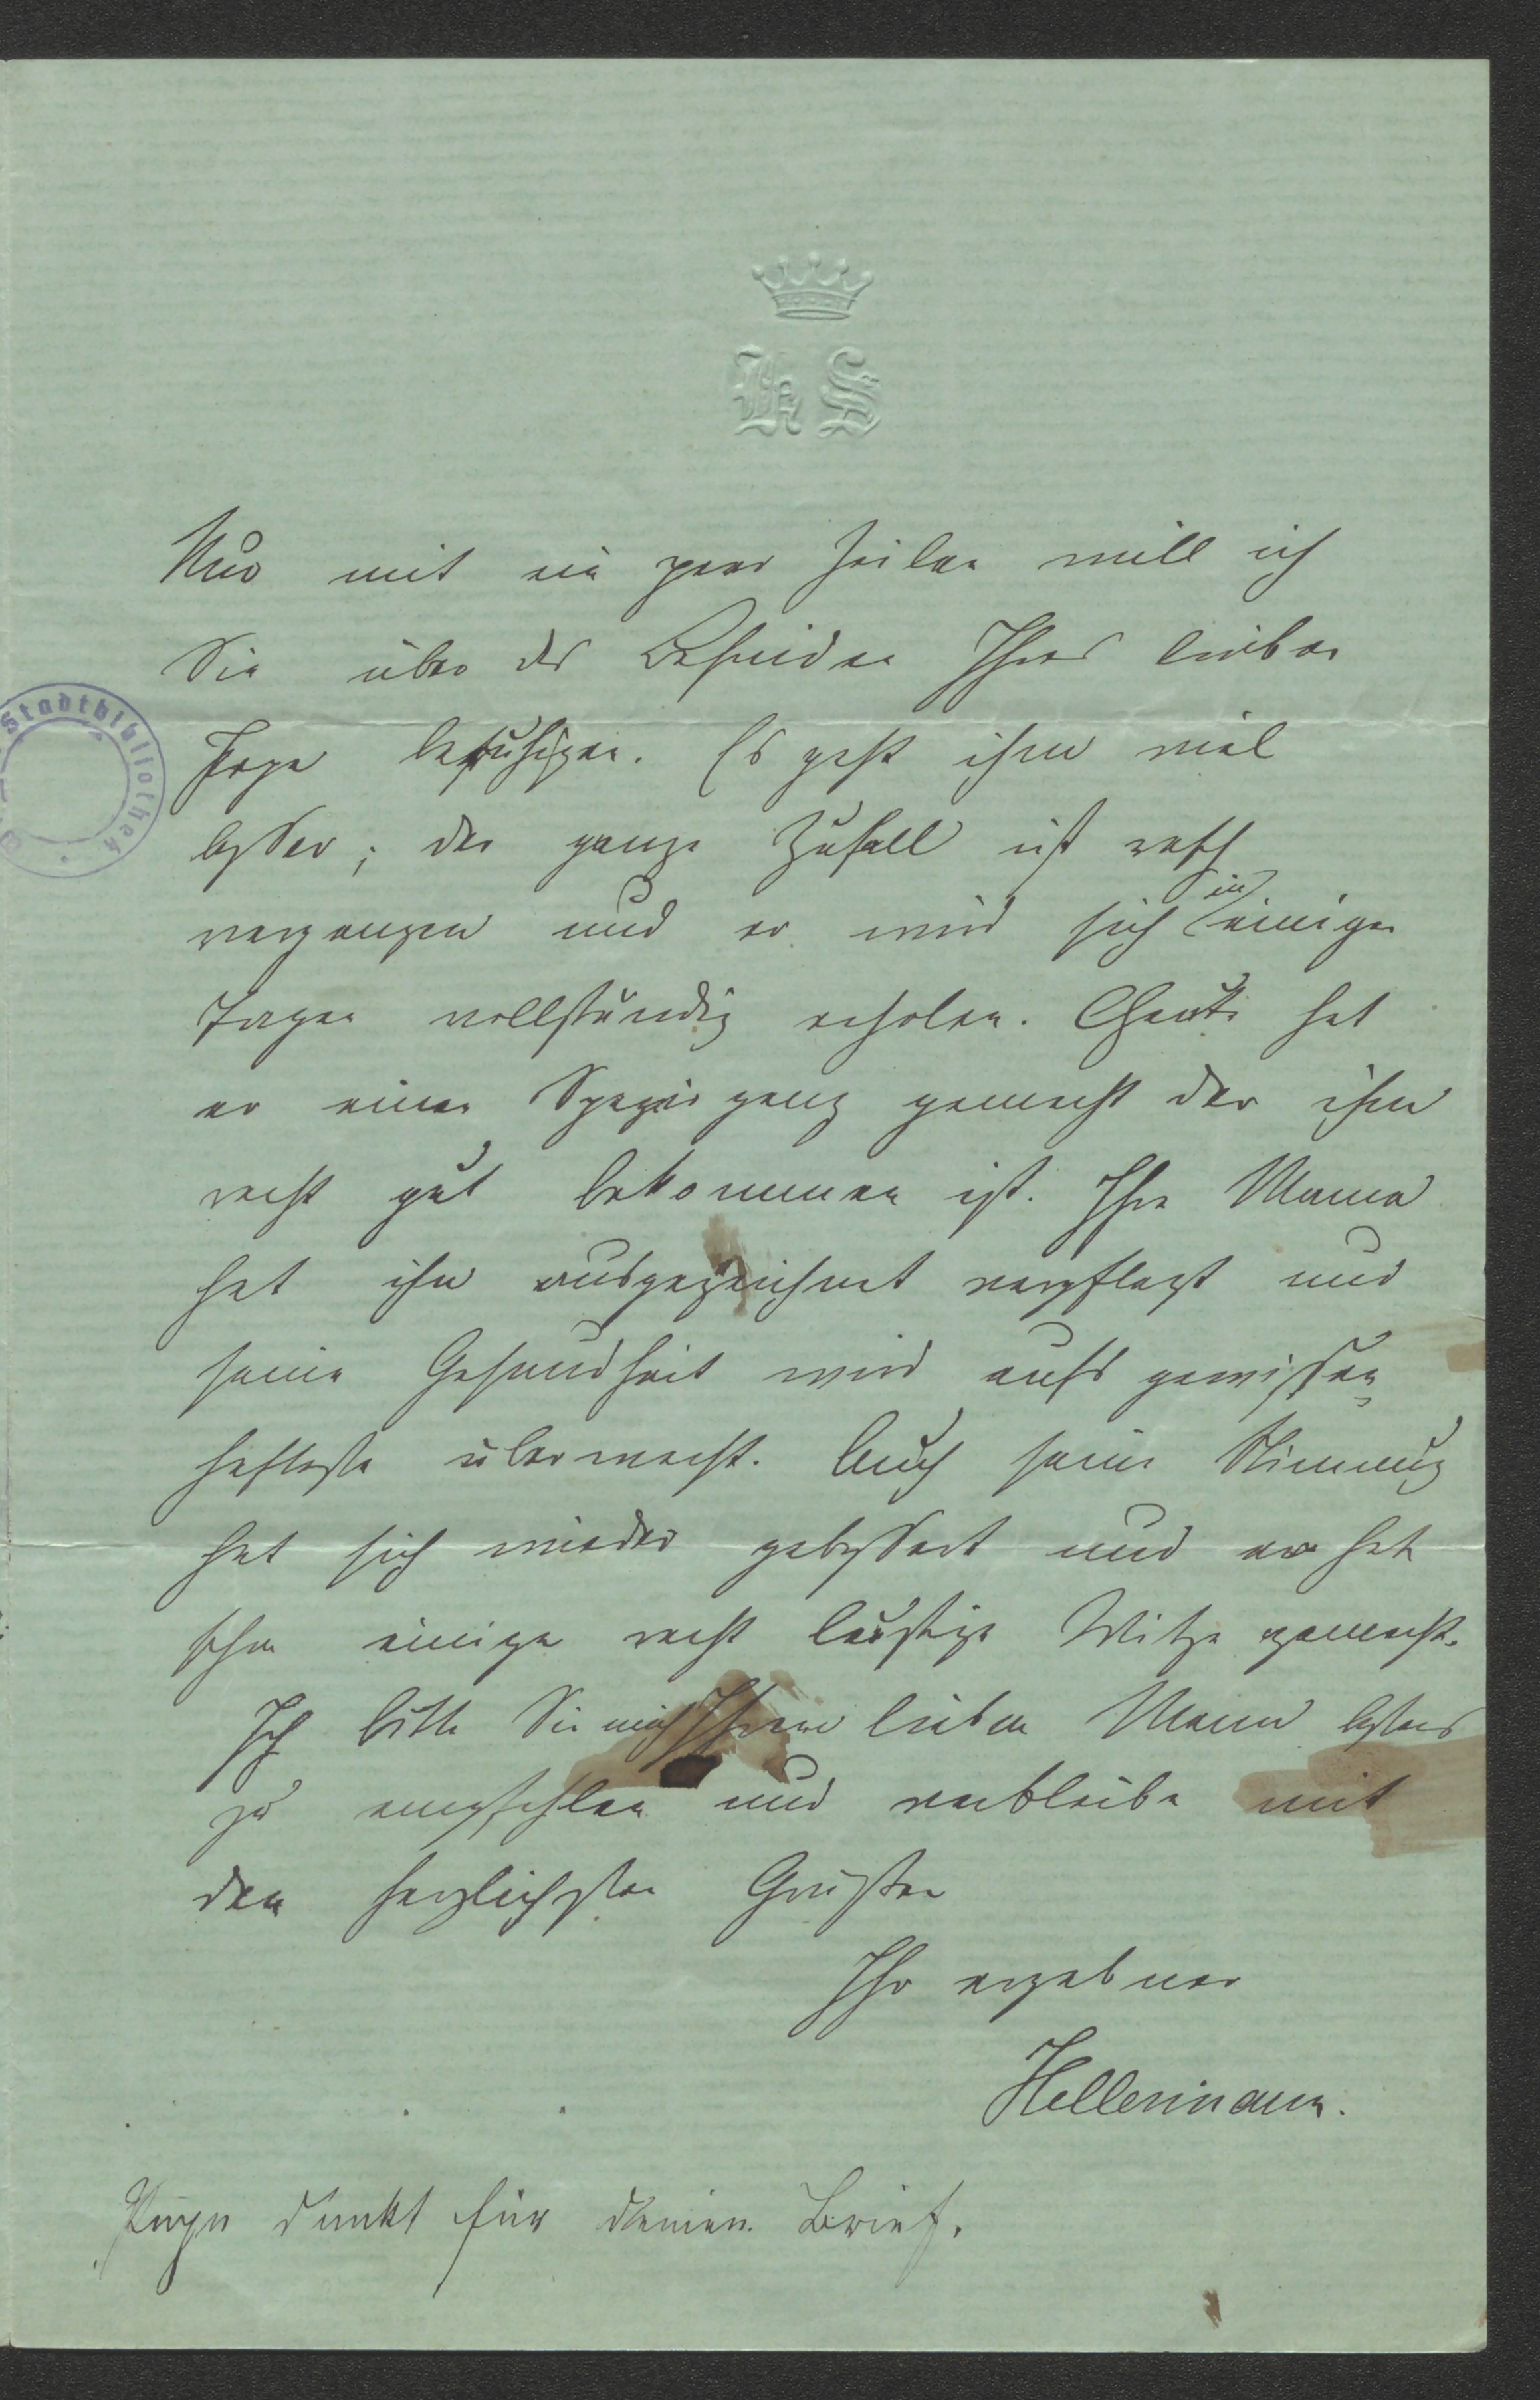 KS
Nur mit ein paar Zeilen will ich
Sie über das Befinden Ihres lieben
Papa beruhigen. Es geht ihm viel
besser; der ganze Zufall ist rasch
vergangen und er wird sich in einigen
Tagen vollständig erholen. Heute hat
er einen Spaziergang gemacht der ihm
recht gut bekommen ist. Ihre Mama
hat ihn ausgezeichnet verpflegt und
seine Gesundheit wird aufs gewissen-
hafteste überwacht. Auch seine Stimmung
hat sich wieder gebessert und er hat
schon einige recht lustige Witze gemacht.
Ich bitte Sie mich Ihrem lieben Mann bestens
zu empfehlen und verbleibe mit
den herzlichsten Grüßen
Ihr ergebner
Hellermann.
Papa dankt für deinen Brief.
Stadtbibliothek